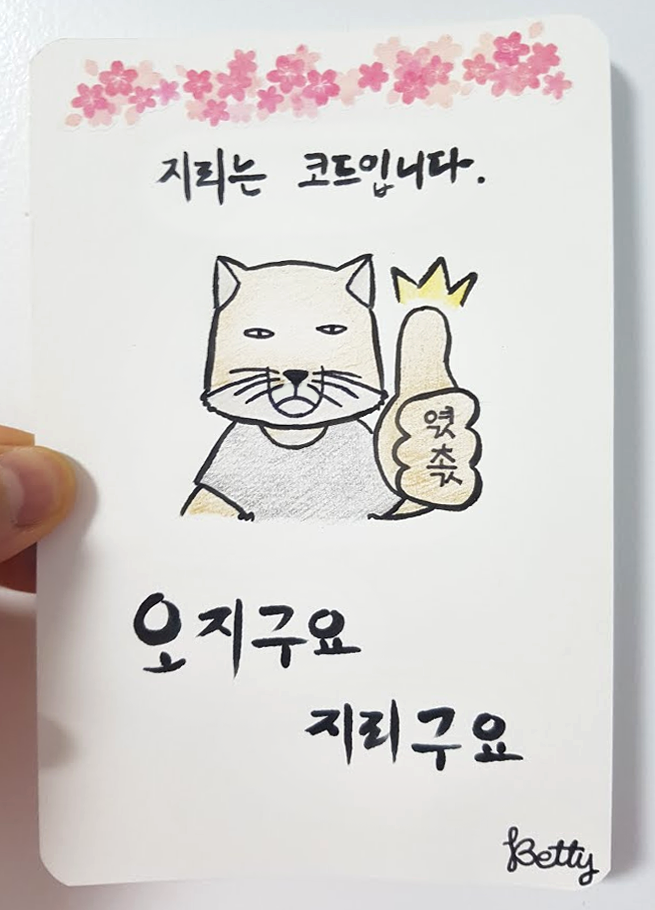 지리는 코드입니다.
엿
촋
오지구요
지리구요
Betty